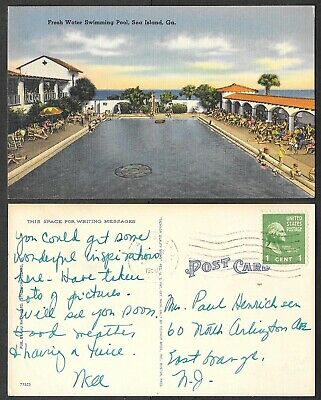 Fresh Water Swimming Pool, Sea Island, Ga.
THIS SPACE FOR WRITING MESSAGES
You could get some
wonderful inspirations
here. Have taken
lots of pictures.
Will see you soon.
Good weather
& having a nice.
POST CARD
UNITED STATES
POSTAGE
1 CENT 1
Mrs. Paul Henrichsen
60 North Arlington Ave
East Orange,
N.J.
77523